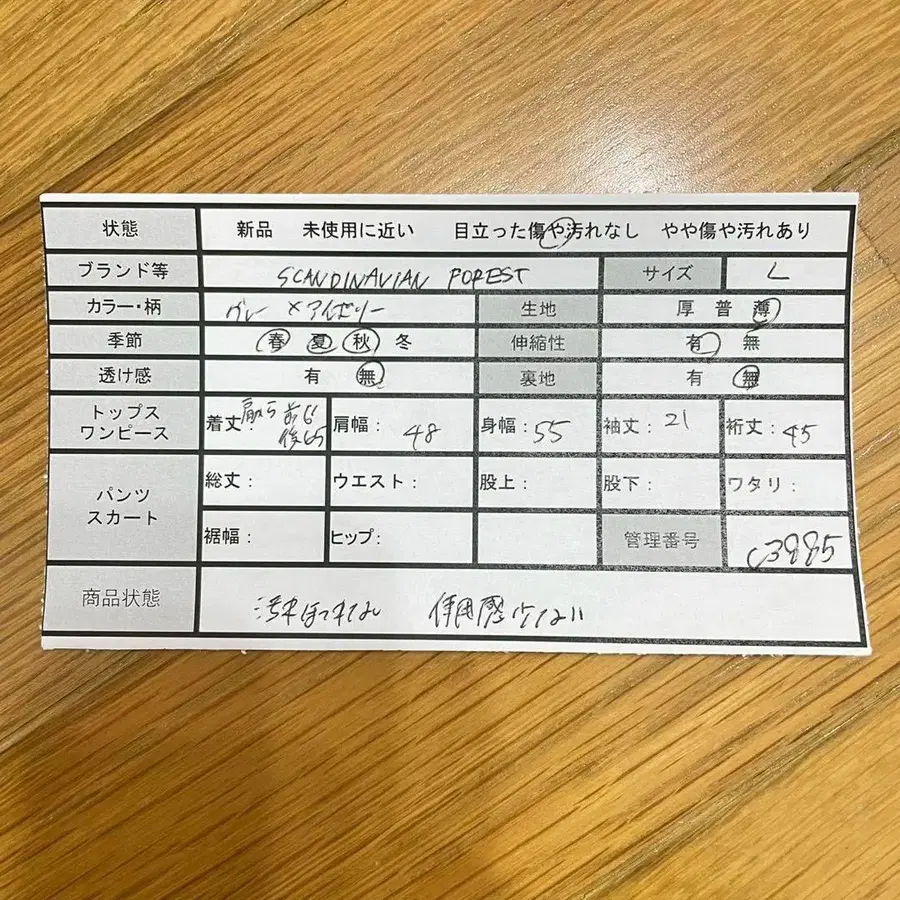 状態 新品 未使用に近い 目立った傷や汚れなし やや傷や汚れあり
ブランド等 SCANDINAVIAN FOREST サイズ L
カラー・柄 グレー×アイボリー 生地 厚 普 薄
季節 春 夏 秋 冬 伸縮性 有 無
透け感 有 無 裏地 有 無
トップス ワンピース 着丈: 肩から 前61 後65 肩幅: 48 身幅: 55 袖丈: 21 裄丈: 45
パンツ スカート 総丈: ウエスト: 股上: 股下: ワタリ:
裾幅: ヒップ: 管理番号 C3985
商品状態 汚れほつれなし 使用感少ない